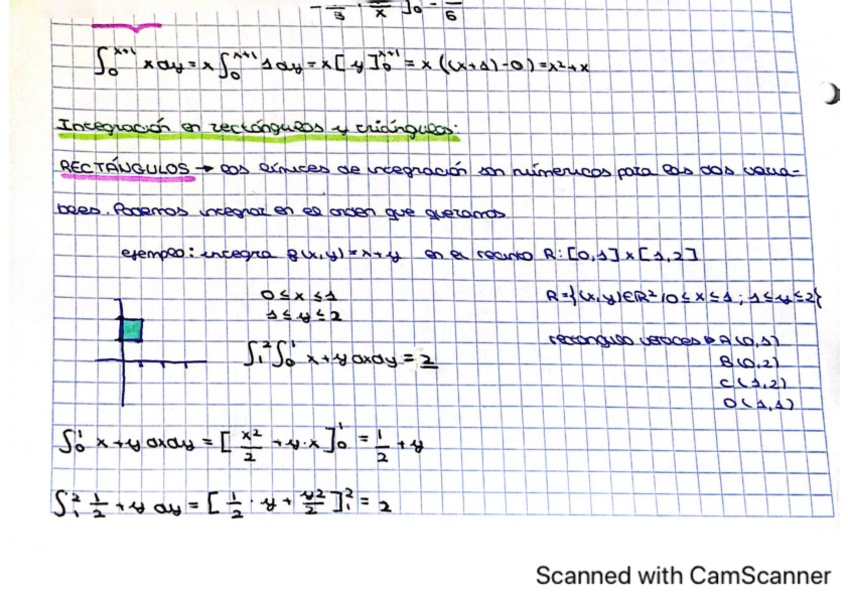 3 x ]0 = 6
∫₀ˣ⁺¹ x dy = x ∫₀ˣ⁺¹ 1 dy = x [ y ]₀ˣ⁺¹ = x ((x+1)-0) = x²+x
Integración en rectángulos y triángulos:
RECTÁNGULOS → los límites de integración son númericos para las dos varia-
bles. Podemos integrar en el orden que queramos
ejemplo: integra f(x,y) = x+y en el recinto R: [0,1] x [1,2]
0 ≤ x ≤ 1
1 ≤ y ≤ 2
R = {(x,y) ∈ R² / 0 ≤ x ≤ 1 ; 1 ≤ y ≤ 2}
∫₁² ∫₀¹ x+y dx dy = 2
rectángulo vértices → A(0,1)
B(0,2)
C(1,2)
D(1,1)
∫₀¹ x+y dx dy = [ x²/2 + y·x ]₀¹ = 1/2 + y
∫₁² 1/2 + y dy = [ 1/2 · y + y²/2 ]₁² = 2
Scanned with CamScanner